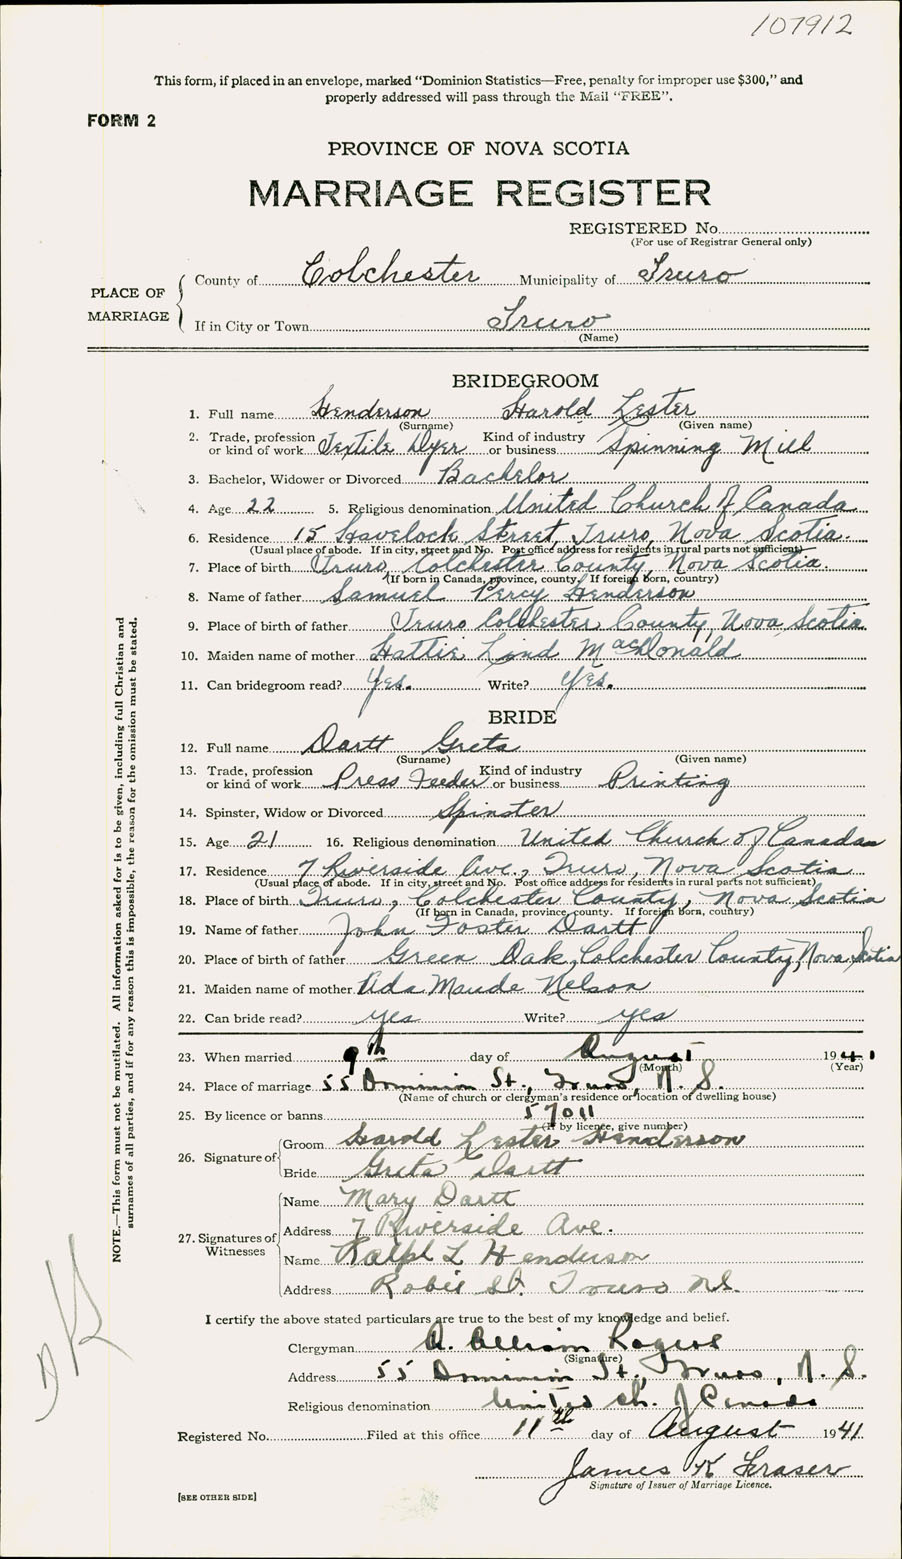 107912
This form, if placed in an envelope, marked "Dominion Statistics—Free, penalty for improper use $300," and
properly addressed will pass through the Mail "FREE".
FORM 2
PROVINCE OF NOVA SCOTIA
MARRIAGE REGISTER
REGISTERED No.
(For use of Registrar General only)
PLACE OF MARRIAGE
County of Colchester Municipality of Truro
If in City or Town Truro
(Name)
BRIDEGROOM
1. Full name Henderson Harold Lester
(Surname) (Given name)
2. Trade, profession or kind of work Textile Dyer Kind of industry or business Spinning Mill
3. Bachelor, Widower or Divorced Bachelor
4. Age 22 5. Religious denomination United Church of Canada
6. Residence 15 Havelock Street, Truro, Nova Scotia.
(Usual place of abode. If in city, street and No. Post office address for residents in rural parts not sufficient)
7. Place of birth Truro, Colchester County, Nova Scotia.
(If born in Canada, province, county. If foreign born, country)
8. Name of father Samuel Percy Henderson
9. Place of birth of father Truro Colchester County, Nova Scotia
10. Maiden name of mother Hattie Lind MacDonald
11. Can bridegroom read? Yes. Write? Yes.
BRIDE
12. Full name Dartt Greta
(Surname) (Given name)
13. Trade, profession or kind of work Press Feeder Kind of industry or business Printing
14. Spinster, Widow or Divorced Spinster
15. Age 21 16. Religious denomination United Church of Canada
17. Residence 7 Riverside Ave., Truro, Nova Scotia
(Usual place of abode. If in city, street and No. Post office address for residents in rural parts not sufficient)
18. Place of birth Truro, Colchester County, Nova Scotia
(If born in Canada, province, county. If foreign born, country)
19. Name of father John Foster Dartt
20. Place of birth of father Green Oak, Colchester County, Nova Scotia
21. Maiden name of mother Ada Maude Nelson
22. Can bride read? yes Write? yes
23. When married 9th day of August 1941
(Month) (Year)
24. Place of marriage 55 Dominion St., Truro, N. S.
(Name of church or clergyman's residence or location of dwelling house)
25. By licence or banns 57011
(If by licence, give number)
26. Signature of
Groom Harold Lester Henderson
Bride Greta Dartt
27. Signatures of Witnesses
Name Mary Dartt
Address 7 Riverside Ave.
Name Ralph L Henderson
Address Robie St. Truro N.S.
I certify the above stated particulars are true to the best of my knowledge and belief.
Clergyman A. Rogers
(Signature)
Address 55 Dominion St., Truro, N. S.
Religious denomination United Ch. of Canada
Registered No. Filed at this office 11th day of August 1941
James K Fraser
Signature of Issuer of Marriage Licence.
[SEE OTHER SIDE]
NOTE.—This form must not be mutilated. All information asked for is to be given, including full Christian and
surnames of all parties, and if for any reason this is impossible, the reason for the omission must be stated.